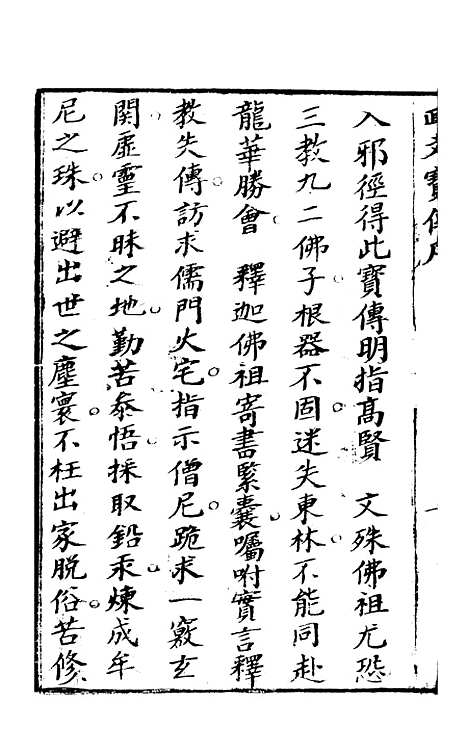 入邪徑得此寶傳明指高賢　文殊佛祖尤恐
三教九二佛子根器不固迷失東林不能同赴
龍華勝會　釋迦佛祖寄書緊囊囑咐實言釋
教失傳訪求儒門火宅指示僧尼跪求一竅玄
関虛靈不昧之地勤苦叅悟採取鉛汞煉成牟
尼之珠以避出世之塵寰不枉出家脱俗苦修